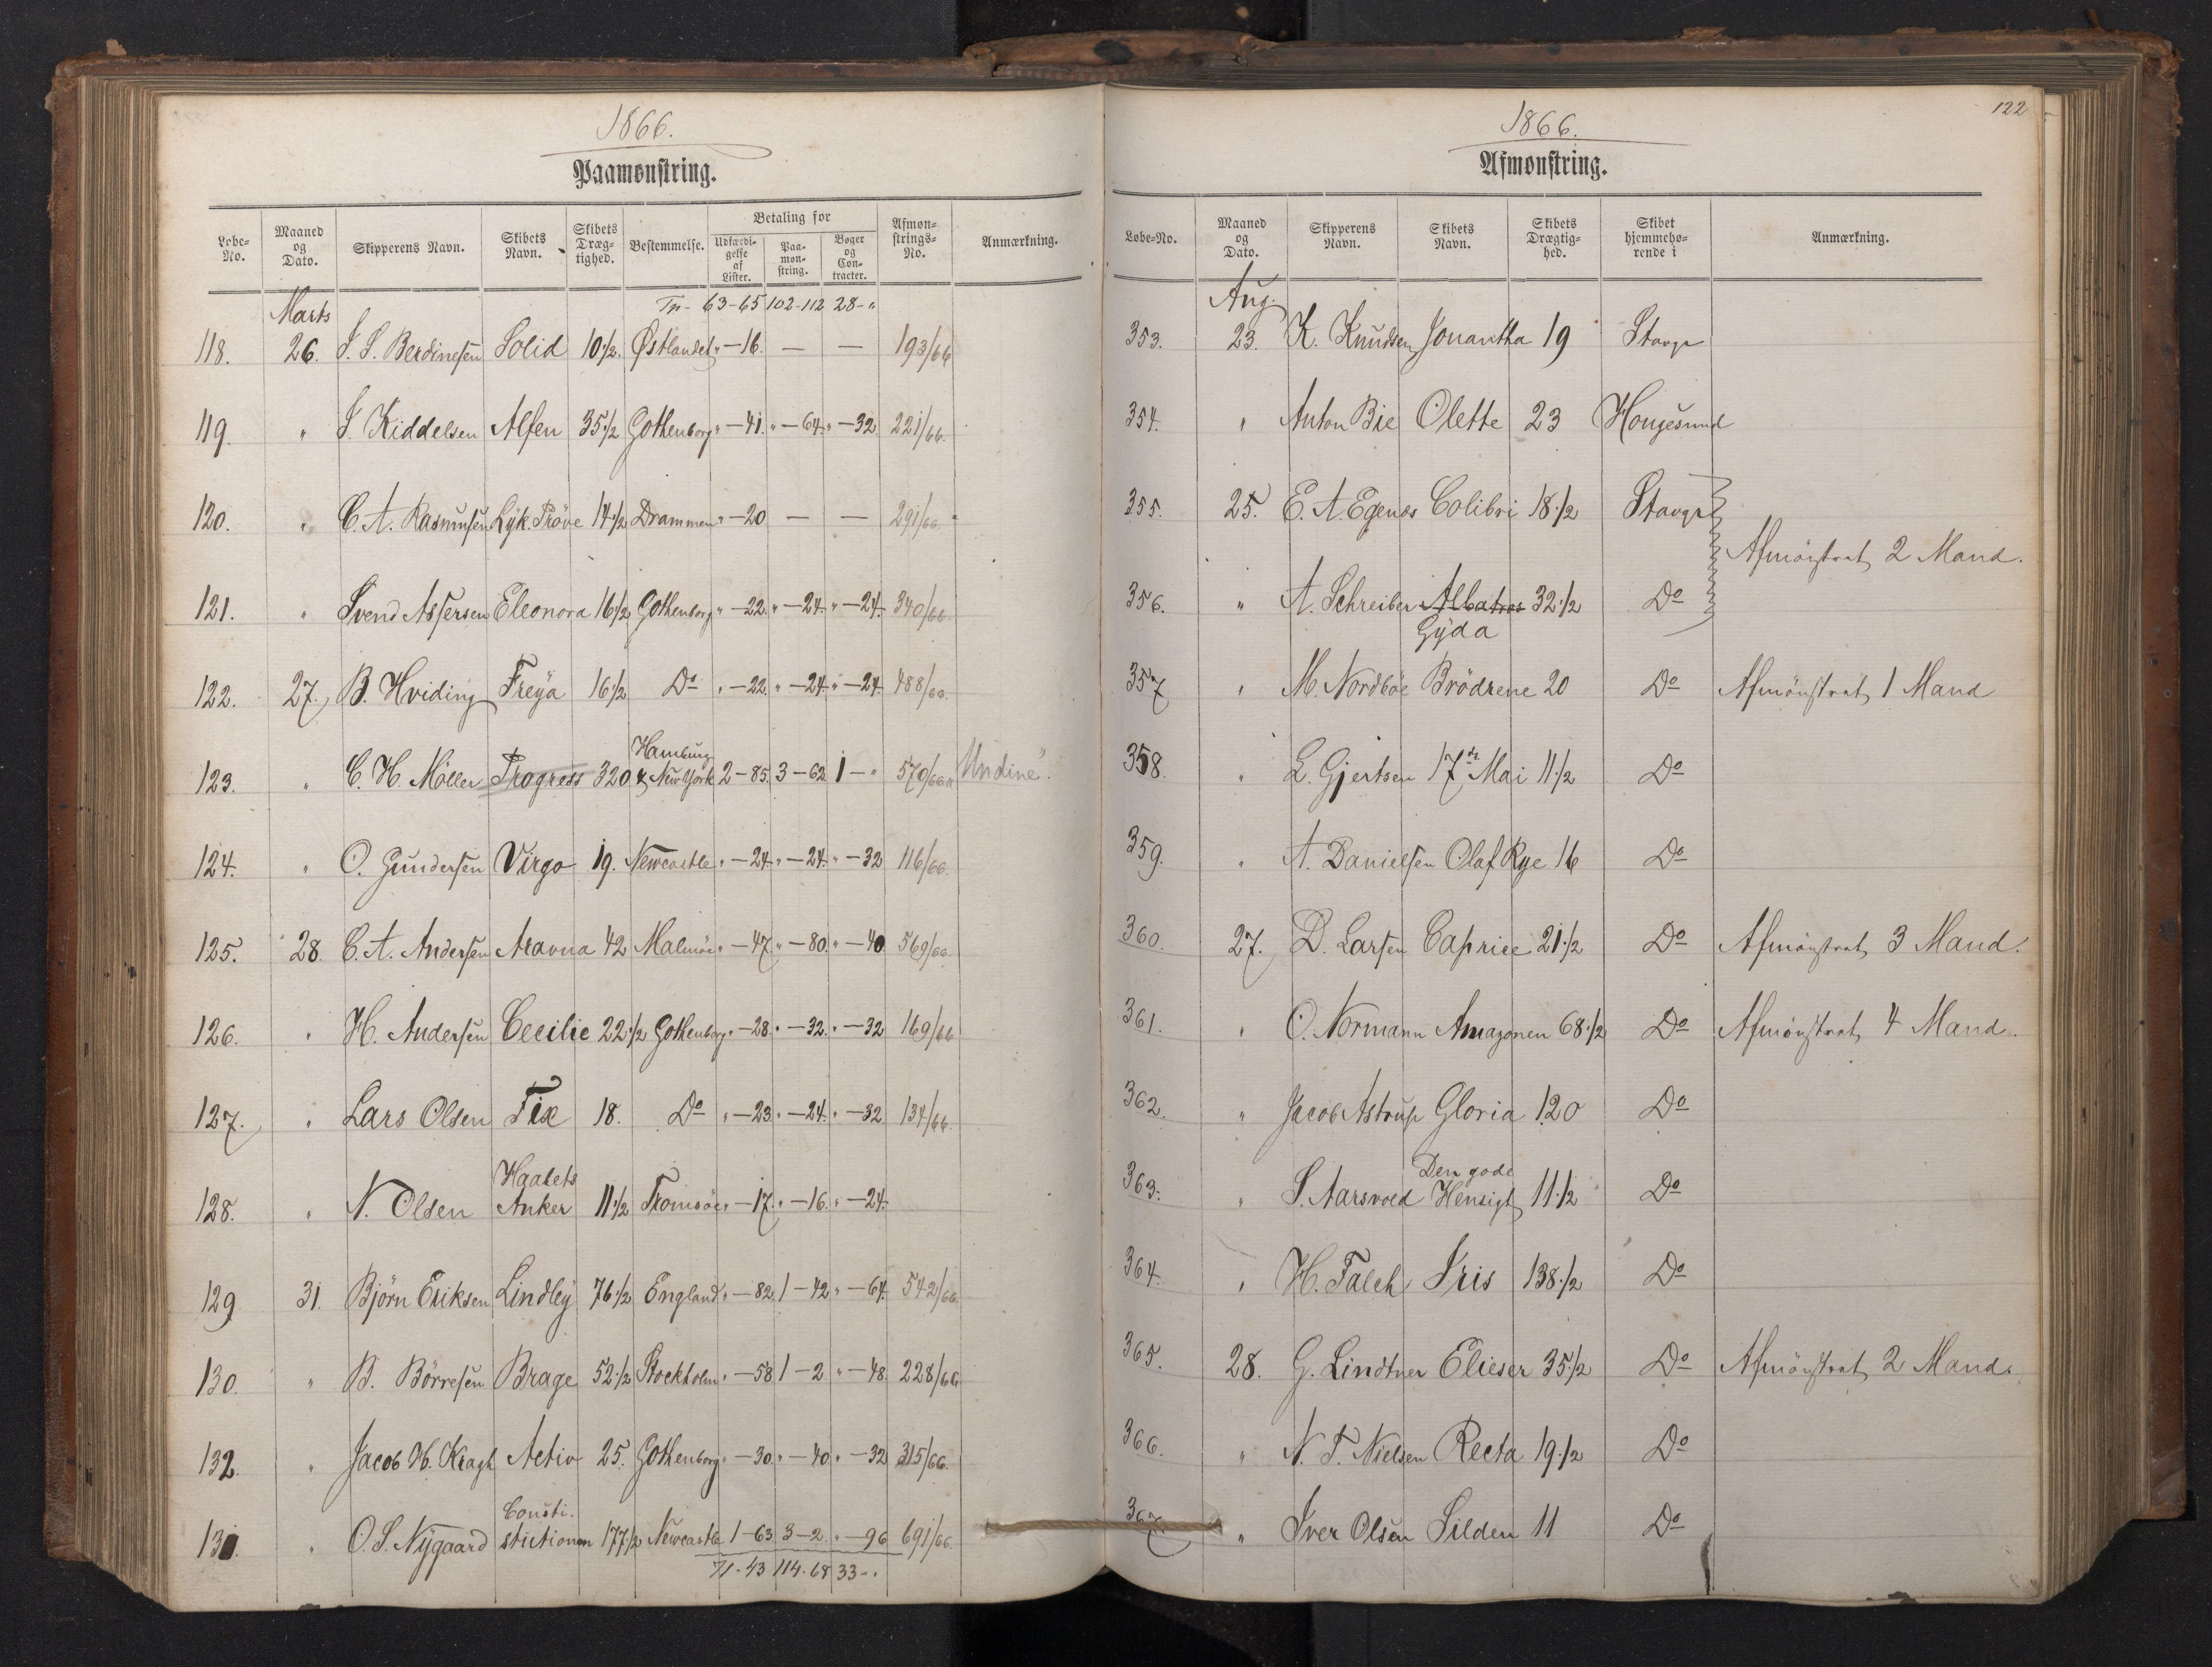 1866.
Paamønstring.
Løbe-No. Maaned og Dato. Skipperens Navn. Skibets Navn. Skibets Dræg-tighed. Bestemmelse. Betaling for Udfærdi-gelse af Lister. Paa-møn-string. Bøger og Con-tracter. Afmøn-strings-No. Anmærkning.
Tr- 63-65 102-112 28-"
Marts
118. 26. S. S. Berdinesen Solid 10 1/2. Østlandet " -16. — — 193/66
119. " S. Kiddelsen Alfen 35 1/2 Gothenborg " -41. " -64. " -32 221/66.
120. " C. A. Rasmusen Lyk. Prøve 14 1/2 Drammen " -20 — — 291/66.
121. " Svend Assersen Eleonora 16 1/2 Gothenborg " -22. " -24. " -24. 340/66
122. 27. B. Hviding Freya 16 1/2 Do " -22. " -24. " -24. 488/66.
123. " C. H. Möller Progress 320 Hamburg & New York 2-85. 3-62 1-" 570/66. "Undine".
124. " O. Gundersen Virgo 19. Newcastle " -24. " -24. " -32 116/66.
125. 28. C. A. Andersen Aravna 42 Malmöe " -47. " -80. " -40. 569/66.
126. " H. Andersen Cecilie 22 1/2 Gothenborg " -28. " -32. " -32 169/66
127. " Lars Olsen Fix 18. Do " -23. " -24. " -32. 134/66.
128. " N. Olsen Haabets Anker 11 1/2 Tromsöe " -17. " -16. " -24.
129 31. Björn Eriksen Lindley 76 1/2 England " -82. 1-42 " -64. 542/66.
130. " B. Börresen Brage 52 1/2 Stockholm " -58 1-2 " -48. 228/66
132. " Jacob H. Kragh Activ 25. Gothenborg " -30. " -40. " -32 315/66.
131. " O. S. Nygaard Consti-stutionen 177 1/2 Newcastle 1-63 3-2. " -96 691/66.
71-43 114-68 33-"
122
1866.
Afmønstring.
Løbe-No. Maaned og Dato. Skipperens Navn. Skibets Navn. Skibets Drægtig-hed. Skibet hjemmehø-rende i Anmærkning.
Aug.
353. 23. K. Knudsen Jonantha 19 Stavgr
354. " Anton Bie Olette 23 Hougesund
355. 25. E. A. Egenes Colibri 18 1/2 Stavgr
Afmönstret 2 Mand.
356. " A. Schreiber Albatros 32 1/2 Do
Gyda
357 " M. Nordböe Brödrene 20 Do Afmönstret 1 Mand
358. " L. Gjertsen 17de Mai 11 1/2 Do
359. " A. Danielsen Olaf Rye 16 Do
360. 27. D. Larsen Caprice 21 1/2 Do Afmönstret 3 Mand.
361. " O. Normann Amazonen 68 1/2 Do Afmönstret 4 Mand.
362. " Jacob Astrup Gloria 120 Do
363. " S. Aarsvold Den gode Hensigt 11 1/2 Do
364. " H. Falch Iris 138 1/2 Do
365. 28. G. Lindtner Elieser 35 1/2 Do Afmönstret 2 Mand.
366. " N. T. Nielsen Recta 19 1/2 Do
367 " Iver Olsen Silden 11 Do